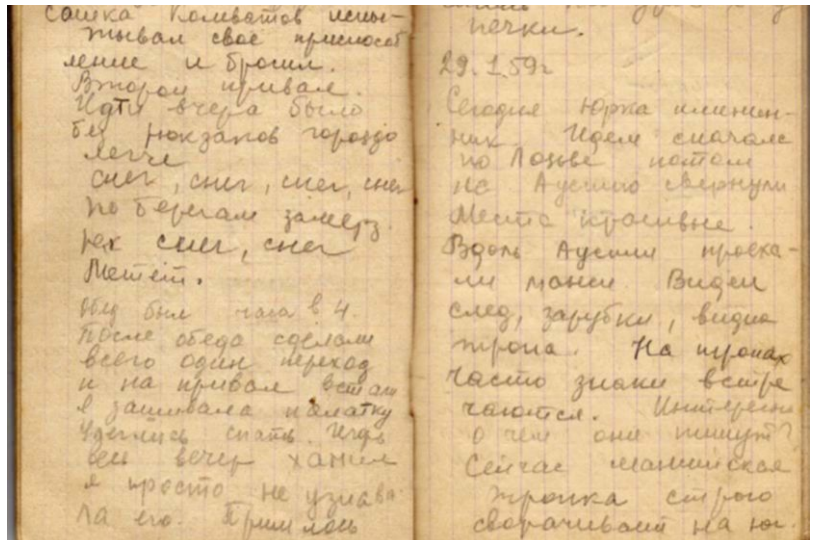 Сашка Колеватов испы-
тывал свое приспособ
ление и бросил.
Второй привал.
Идти вчера было
без рюкзаков гораздо
легче
снег, снег, снег, снег
по берегам замерз.
рек снег, снег
Метет.
Обед был часа в 4.
После обеда сделали
всего один переход
и на привал встали
я зашивала палатку
Улеглись спать. Игорь
весь вечер хамил
я просто не узнава
ла его. Пришлось
печки.
29.1.59г
Сегодня Юрка именин-
ник. Идем сначала
по Лозьве потом
на Ауспию свернули
Места красивые.
Вдоль Ауспии проеха-
ли манси. Виден
след, зарубки, видна
тропа. На тропах
часто знаки встре
чаются. Интересно
о чем они пишут?
Сейчас мансийская
тропка строго
сворачивает на юг.